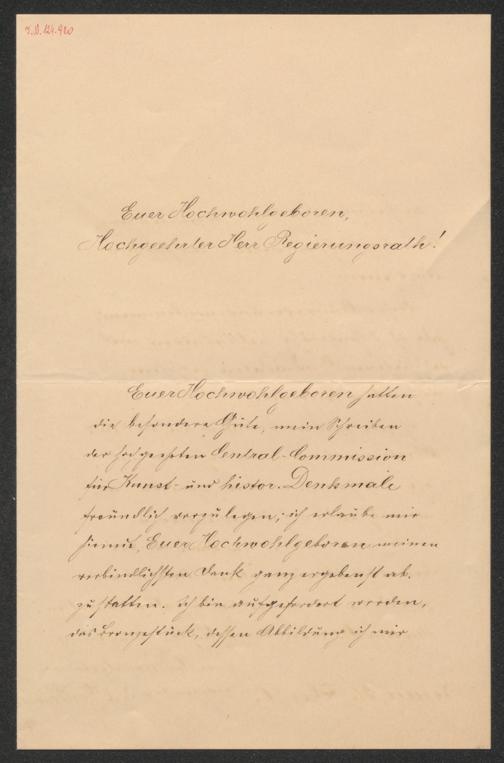 I.N. 124.920
Euer Hochwohlgeboren,
Hochgeehrter Herr Regierungsrath!
Euer Hochwohlgeboren hatten
die besondere Güte, mein Schreiben
der hochgeehrten Central-Commission
für Kunst- und histor. Denkmale
freundlich vorzulegen; ich erlaube mir
hiemit, Euer Hochwohlgeboren meinen
verbindlichsten Dank ganz ergebenst ab-
zustatten. Ich bin aufgefordert worden,
das Bronzestück, dessen Abbildung ich mir